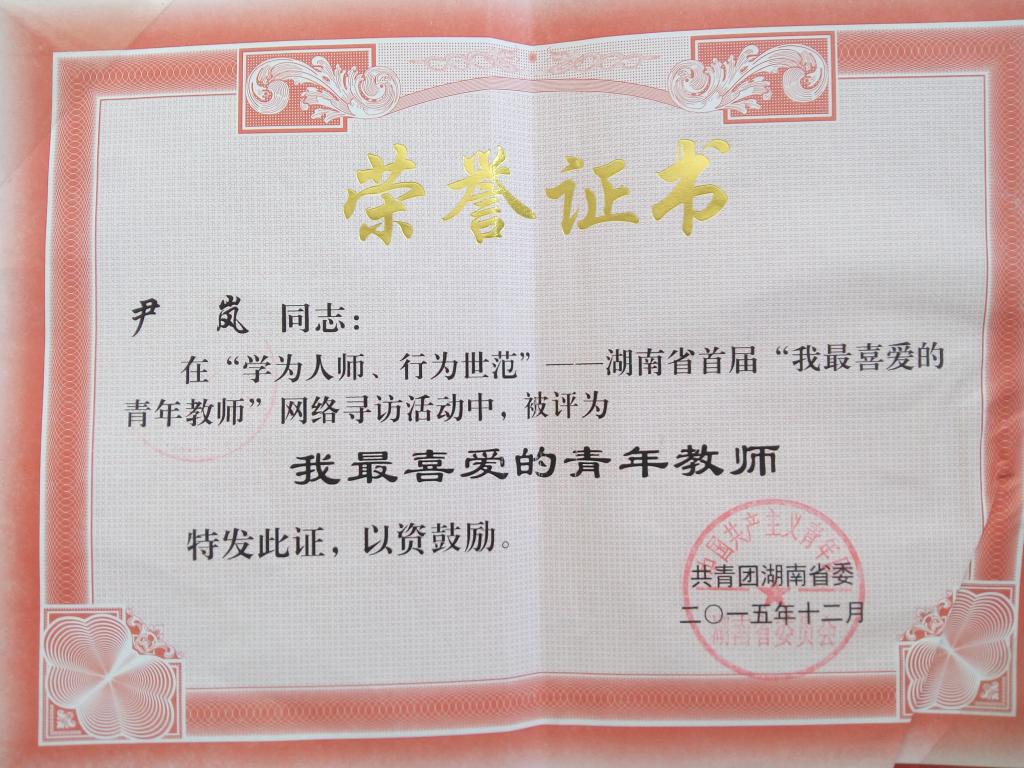 荣誉证书
尹 岚 同志：
在“学为人师、行为世范”——湖南省首届“我最喜爱的
青年教师”网络寻访活动中，被评为
我最喜爱的青年教师
特发此证，以资鼓励。
中国共产主义青年团
共青团湖南省委
二〇一五年十二月
湖南省委员会